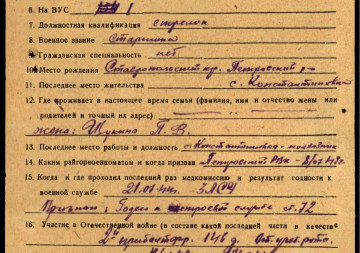 6. На ВУС 1
7. Должностная квалификация стрелок
8. Военное звание Старшина
9. Гражданская специальность нет
10. Место рождения Ставропольский кр. Петровский р-н
11. Последнее место жительства с. Константиновка
12. Где проживает в настоящее время семья (фамилия, имя и отчество жены или
родителей и точный их адрес)
жена: Щукина П. В.
13. Последнее место работы и должность с. Константиновка
14. Каким райгорвоенкоматом и когда призван Петровский РВК
15. Когда и где проходил последний раз медкомиссию и результат годности к
военной службе 21.01.44г.
Признан: Годен к строевой службе ст. 72
16. Участие в Отечественной войне (в составе какой последней части и качестве
2й прибалт. фр. 146 д.